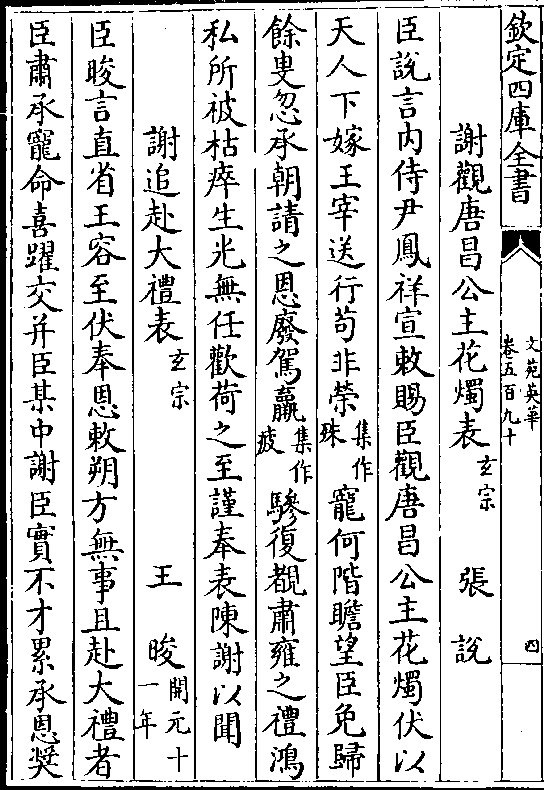 欽定四庫全書
文苑英華
卷五百九十
四
謝觀唐昌公主花燭表玄宗 張說
臣說言内侍尹鳳祥宣敕賜臣觀唐昌公主花燭伏以
天人下嫁王宰送行苟非榮集作殊寵何階瞻望臣免歸
餘叟忽承朝請之恩廢駕羸集作疲驂復覩肅雍之禮鴻
私所被枯瘁生光無任歡荷之至謹奉表陳謝以聞
謝追赴大禮表玄宗 王晙開元十一年
臣晙言直省王容至伏奉恩敕朔方無事且赴大禮者
臣肅承寵命喜躍交并臣某中謝臣實不才累承恩奬